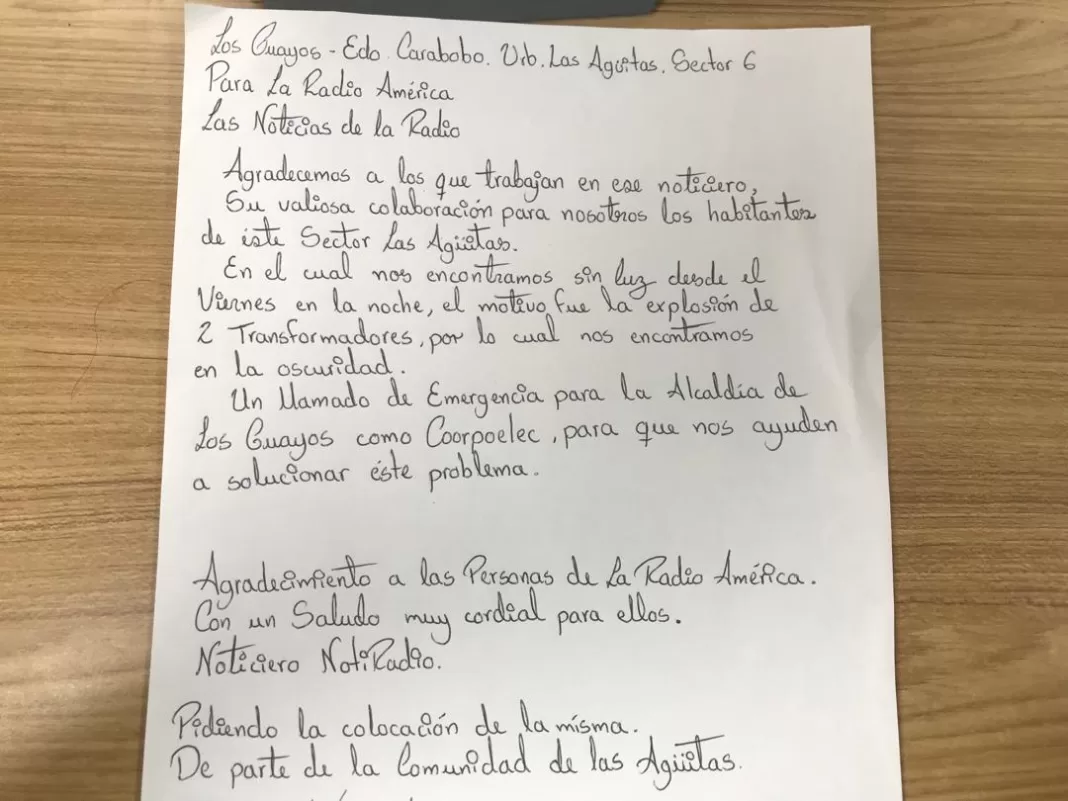 Los Guayos - Edo. Carabobo. Urb. Las Agüitas. Sector 6
Para La Radio América
Las Noticias de la Radio
Agradecemos a los que trabajan en ese noticiero,
Su valiosa colaboración para nosotros los habitantes
de éste Sector Las Agüitas.
En el cual nos encontramos sin luz desde el
Viernes en la noche, el motivo fue la explosión de
2 Transformadores, por lo cual nos encontramos
en la oscuridad.
Un llamado de Emergencia para la Alcaldía de
Los Guayos como Coorpoelec, para que nos ayuden
a solucionar éste problema.
Agradecimiento a las Personas de La Radio América.
Con un Saludo muy cordial para ellos.
Noticiero NotiRadio.
Pidiendo la colocación de la mísma.
De parte de la Comunidad de las Agüitas.